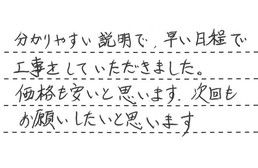 分かりやすい説明で、早い日程で
工事をしていただきました。
価格も安いと思います. 次回も
お願いしたいと思います